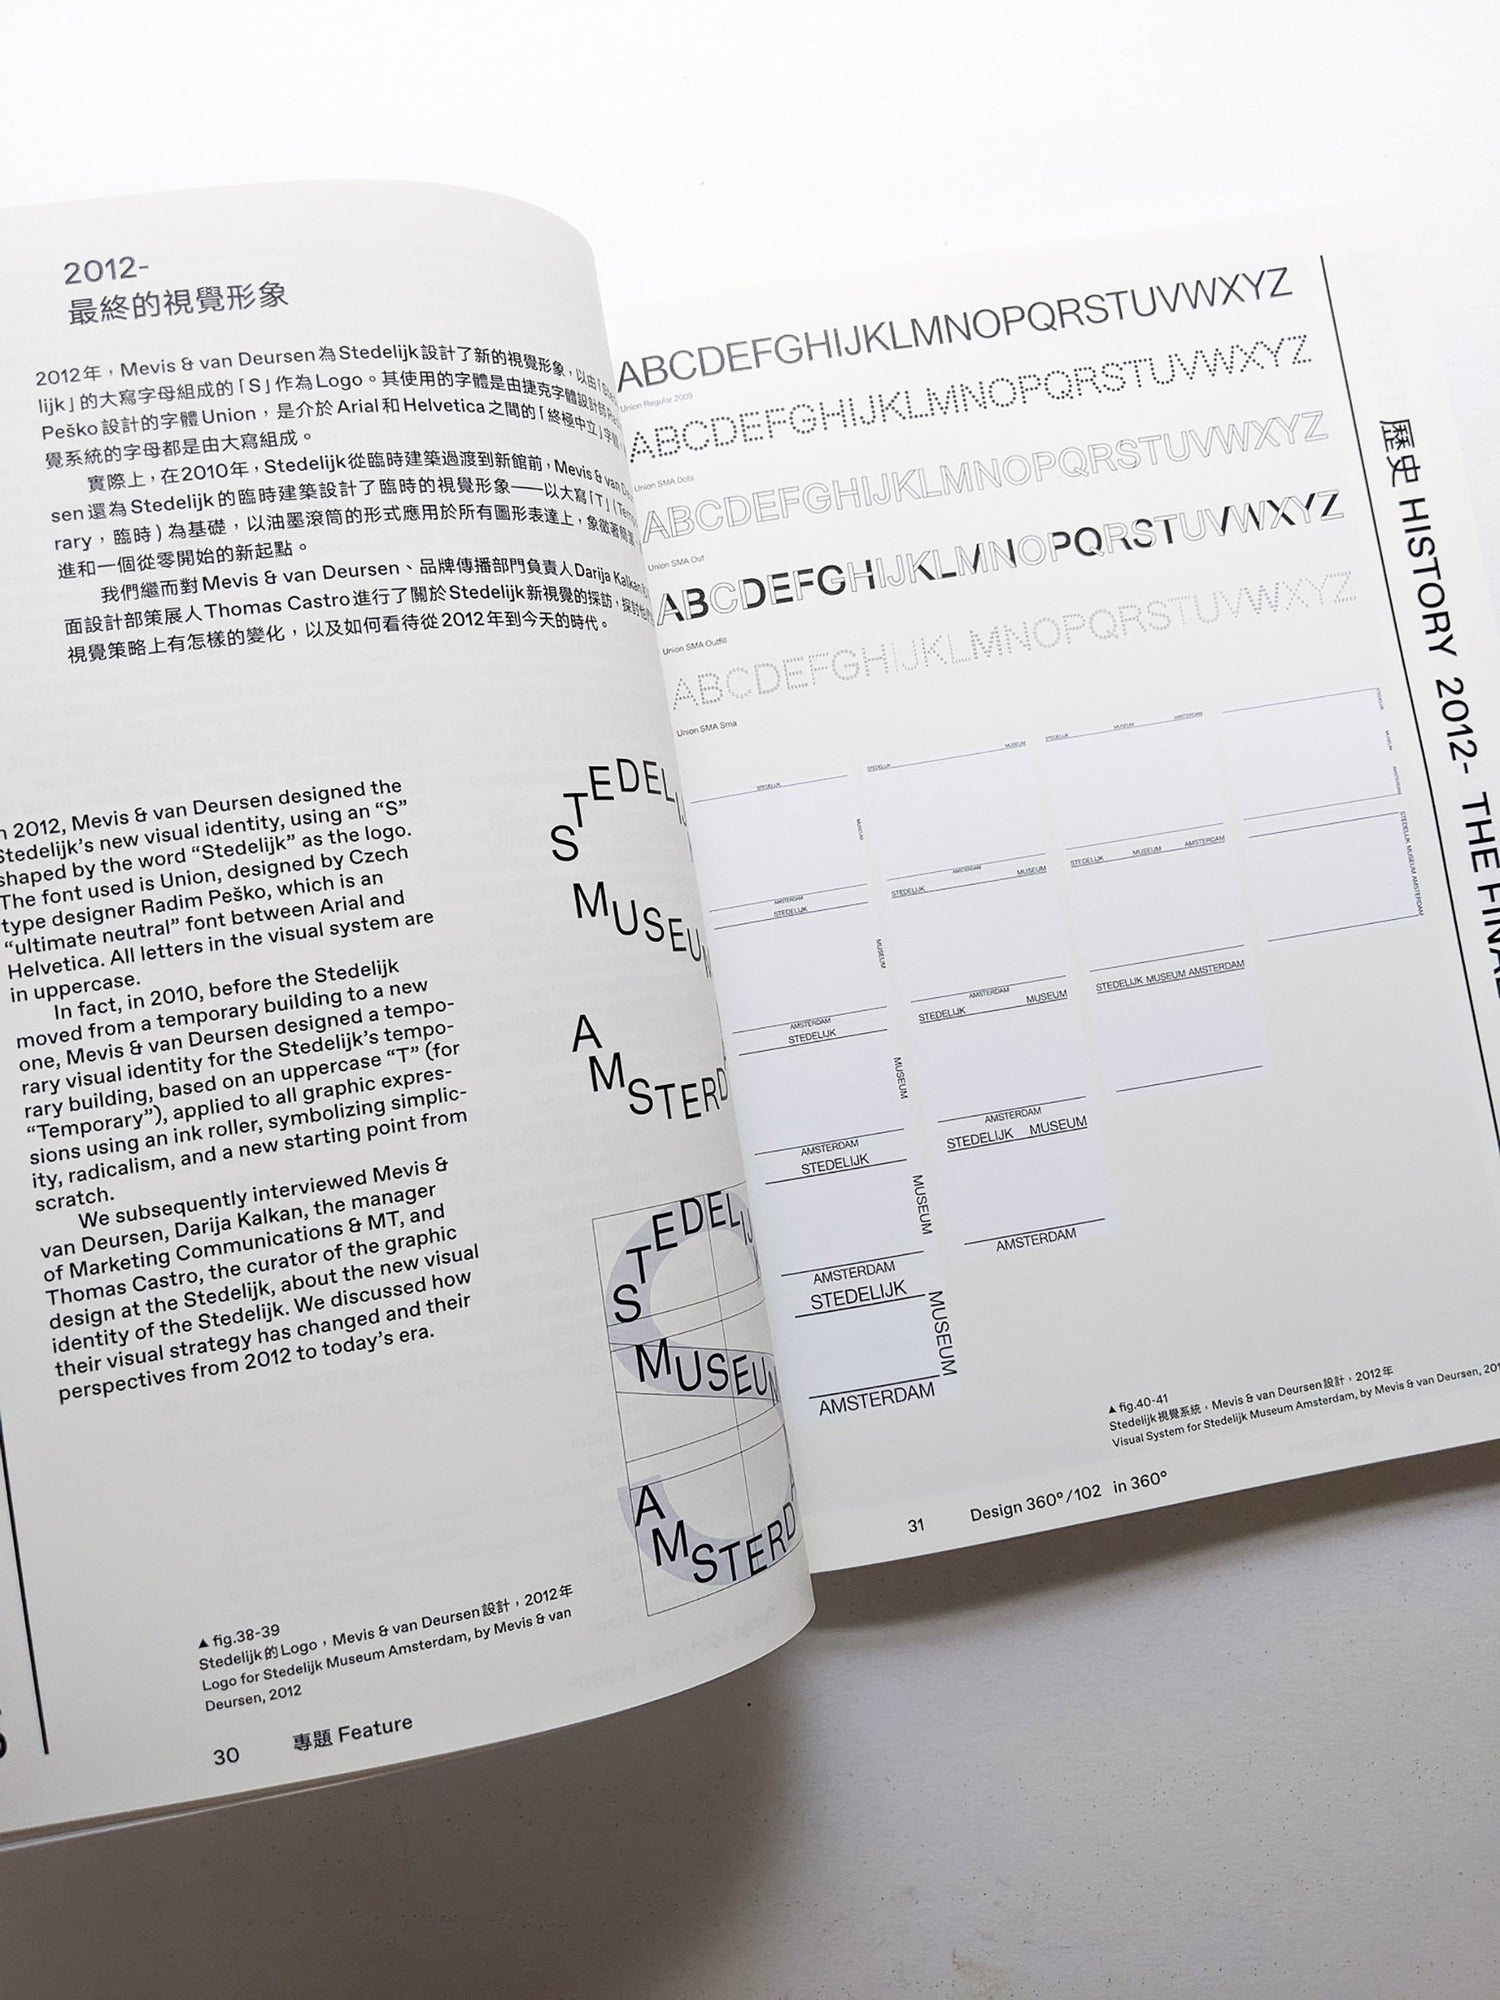 2012-
最終的視覺形象
2012年，Mevis & van Deursen為Stedelijk設計了新的視覺形象，以由「Ste
lijk」的大寫字母組成的「S」作為Logo。其使用的字體是由捷克字體設計師
Peško設計的字體Union，是介於Arial和Helvetica之間的「終極中立」字體
覺系統的字母都是由大寫組成。
實際上，在2010年，Stedelijk從臨時建築過渡到新館前，Mevis & van De
sen還為Stedelijk的臨時建築設計了臨時的視覺形象——以大寫「T」（Tem
rary，臨時）為基礎，以油墨滾筒的形式應用於所有圖形表達上，象徵著簡潔
進和一個從零開始的新起點。
我們繼而對Mevis & van Deursen、品牌傳播部門負責人Darija Kalkan
面設計部策展人Thomas Castro進行了關於Stedelijk新視覺的採訪，探討
視覺策略上有怎樣的變化，以及如何看待從2012年到今天的時代。
n 2012, Mevis & van Deursen designed the
Stedelijk's new visual identity, using an “S”
shaped by the word “Stedelijk” as the logo.
The font used is Union, designed by Czech
type designer Radim Peško, which is an
“ultimate neutral” font between Arial and
Helvetica. All letters in the visual system are
in uppercase.
In fact, in 2010, before the Stedelijk
moved from a temporary building to a new
one, Mevis & van Deursen designed a tempo-
rary visual identity for the Stedelijk's tempo-
rary building, based on an uppercase “T” (for
“Temporary”), applied to all graphic expres-
sions using an ink roller, symbolizing simplic-
ity, radicalism, and a new starting point from
scratch.
We subsequently interviewed Mevis &
van Deursen, Darija Kalkan, the manager
of Marketing Communications & MT, and
Thomas Castro, the curator of the graphic
design at the Stedelijk, about the new visual
identity of the Stedelijk. We discussed how
their visual strategy has changed and their
perspectives from 2012 to today's era.
STEDELIJ
MUSEUM
AMSTERD
STEDELIJ
MUSEUM
AMSTERD
▲ fig.38-39
Stedelijk的Logo，Mevis & van Deursen設計，2012年
Logo for Stedelijk Museum Amsterdam, by Mevis & van
Deursen, 2012
30 專題 Feature
ABCDEFGHIJKLMNOPQRSTUVWXYZ
Union Regular 2009
ABCDEFGHIJKLMNOPQRSTUVWXYZ
Union SMA Dots
ABCDEFGHIJKLMNOPQRSTUVWXYZ
Union SMA Out
ABCDEFGHIJKLMNOPQRSTUVWXYZ
Union SMA Outfill
ABCDEFGHIJKLMNOPQRSTUVWXYZ
Union SMA Sma
STEDELIJK
MUSEUM
AMSTERDAM
STEDELIJK
MUSEUM
AMSTERDAM
STEDELIJK
MUSEUM
AMSTERDAM
STEDELIJK
MUSEUM
AMSTERDAM
STEDELIJK
MUSEUM
AMSTERDAM
STEDELIJK MUSEUM
AMSTERDAM
STEDELIJK MUSEUM
AMSTERDAM
STEDELIJK MUSEUM
AMSTERDAM
STEDELIJK MUSEUM
AMSTERDAM
STEDELIJK MUSEUM AMSTERDAM
STEDELIJK MUSEUM AMSTERDAM
STEDELIJK MUSEUM AMSTERDAM
STEDELIJK MUSEUM AMSTERDAM
STEDELIJK MUSEUM AMSTERDAM
▲ fig.40-41
Stedelijk視覺系統，Mevis & van Deursen設計，2012年
Visual System for Stedelijk Museum Amsterdam, by Mevis & van Deursen, 201
31 Design 360°/102 in 360°
歷史 HISTORY 2012- THE FINAL